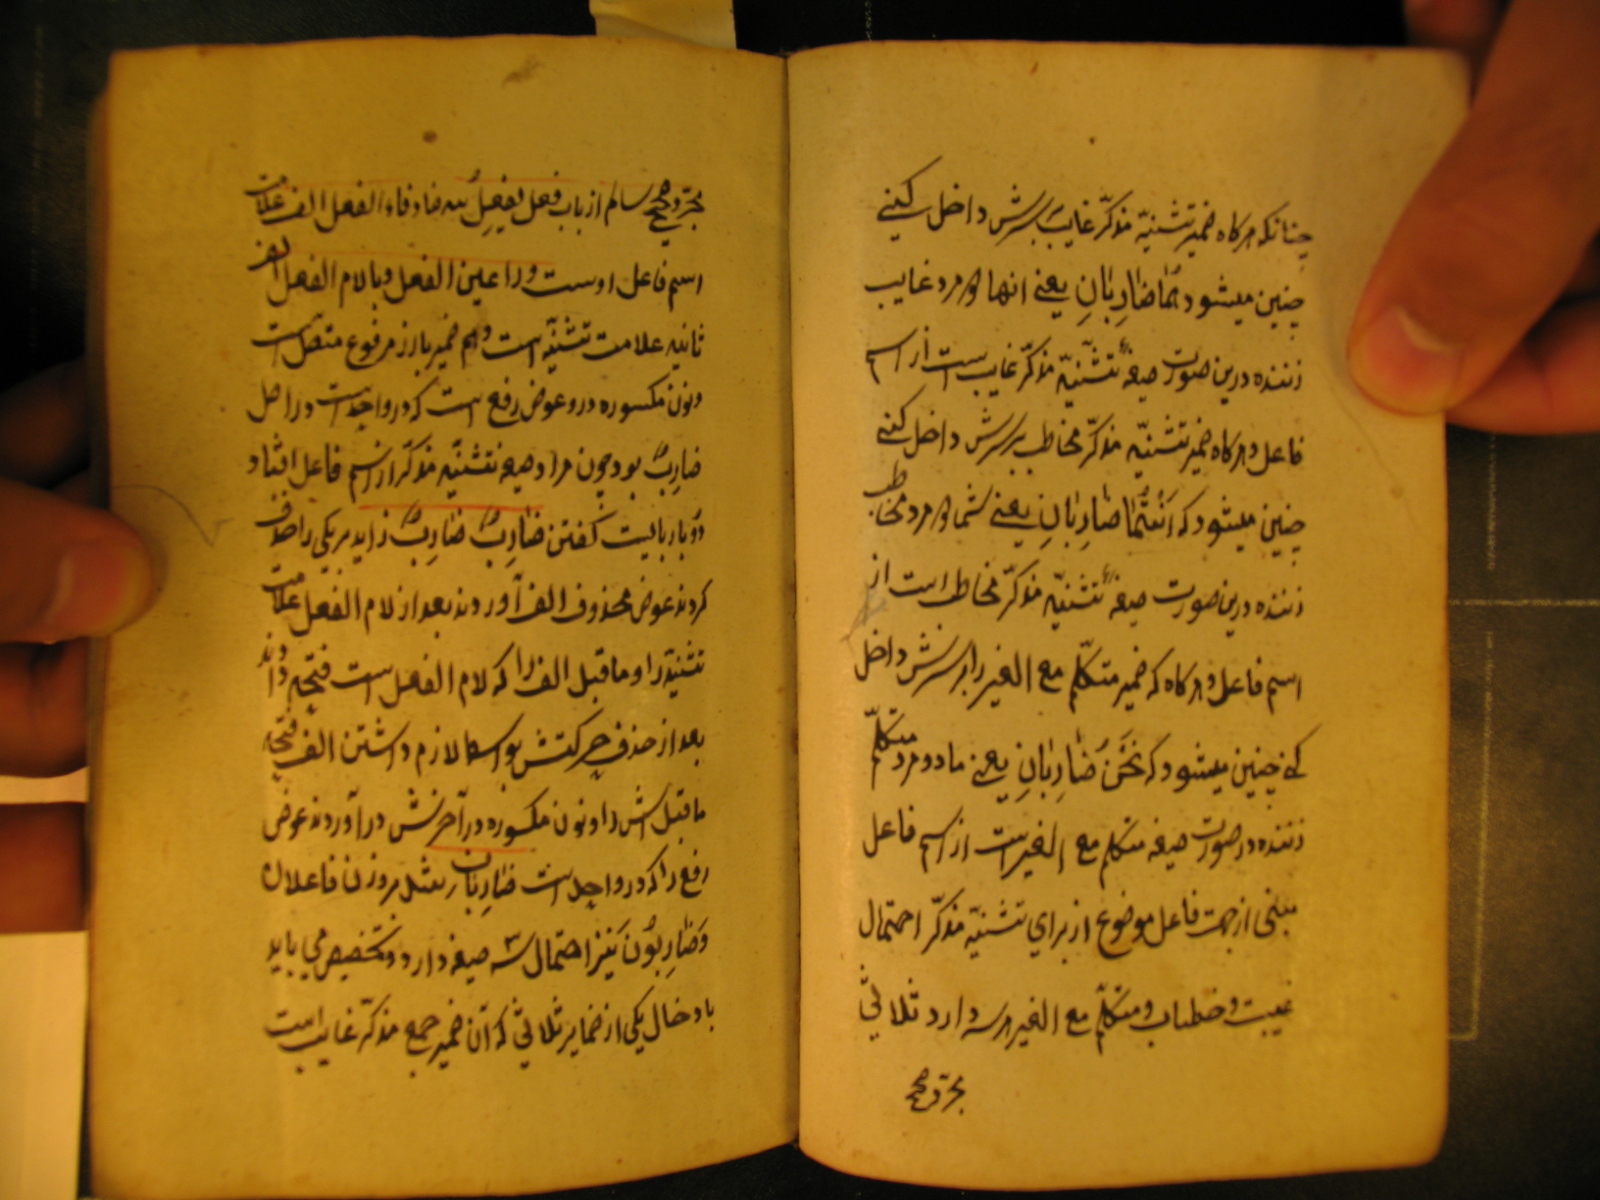 چنانکه هرکاه ضمیر تثنیّه مذکّر غایب برسرش داخل کنیے
چنین میشود هُمَا ضَارِبَانِ یعنے انها دو مرد غایب
زننده درین صورت صیغهٔ تثنیّه مذکّر غایب است از اسم
فاعل و هرکاه ضمیر تثنیّه مذکّر مخاطب برسرش داخل کنیے
چنین میشود که اَنْتُمَا ضَارِبَانِ یعنے شما دو مرد مخاطب
زننده درین صورت صیغهٔ تثنیّه مذکّر مخاطب است از
اسم فاعل و هرکاه که ضمیر متکلّم مع الغیر را برسرش داخل
کنے چنین میشود که نَحْنُ ضَارِبَانِ یعنے ما دو مرد متکلّم
زننده درصورت صیغه متکلم مع الغیر است از اسم فاعل
مبنی از جهت فاعل موضوع از برای تثنیّه مذکّر احتمال
غیبت و خطاب و متکلّم مع الغیر هرسه دارد ثلاثی
مجرّد صحیح
مجرّد صحیح سالم از باب فعل یفعِلُ ضاد فاء الفعل الف علامت
اسم فاعل اوست و را عین الفعل و با لام الفعل الف
ثانیه علامت تثنیّه است و هم ضمیر بارز مرفوع متصل است
و نون مکسوره درو عوض رفع است که در واحد است در اصل
ضارِبٌ بود چون مراد صیغه تثنیّه مذکّر از اسم فاعل افتاد
دو بار بایست کفتن ضَارِبٌ ضَارِبٌ زاید بر یکی را حذف
کردند عوض محذوف الف آوردند بعد از لام الفعل علامت
تثنیّه را و ماقبل الف را که لام الفعل است فتحه دادند
بعد از حذف حرکتش بواسطهٔ لازم داشتن الف فتحه
ماقبل اش را و نون مکسوره در آخرش در آوردند عوض
رفع را که در واحد است ضَارِبَانِ شد بر وزن فاعلان
و ضَارِبُونَ نیز احتمال سه صیغه دارد و تخصیص می یابد
با دخال یکی از ضمایر ثلاثی که آن ضمیر جمع مذکّر غایب است